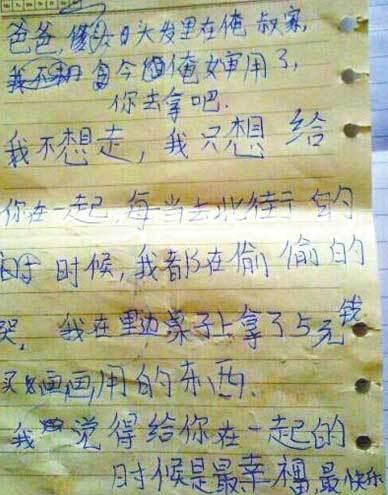 爸爸, 日头发里在俺叔家,
今俺 用了,
你去拿吧.
我不想走, 我只想 给
你在一起, 每当去北街于 的
时候, 我都在偷 偷的
哭. 我在里边桌子上拿了5元钱
买 画画用的东西.
我 觉得给你在一起的
时候是最幸福 最快乐